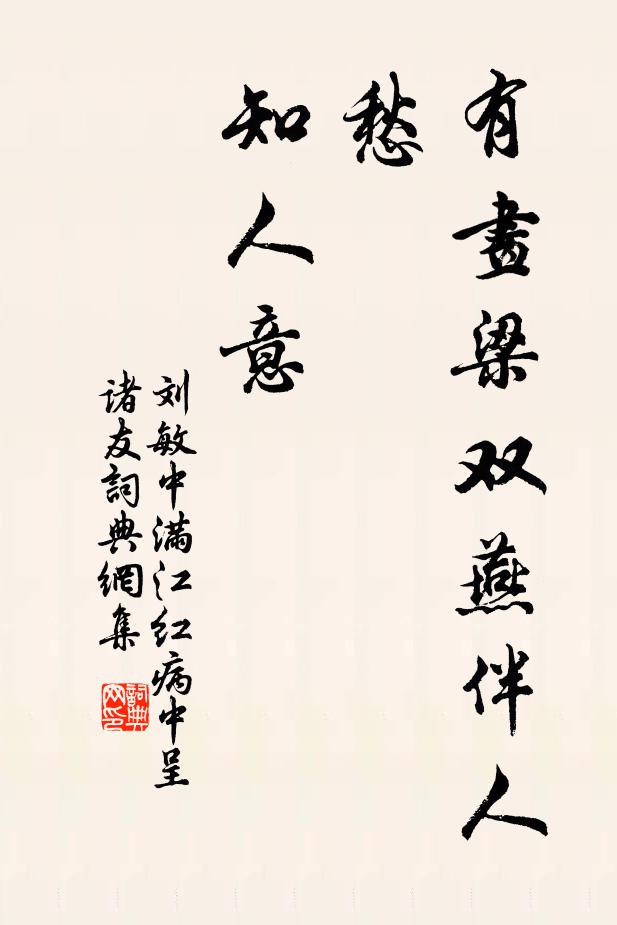 有畫梁双燕伴人
愁
知人意
刘敏中满江红病中呈
诸友詞典網集
詞典
网印